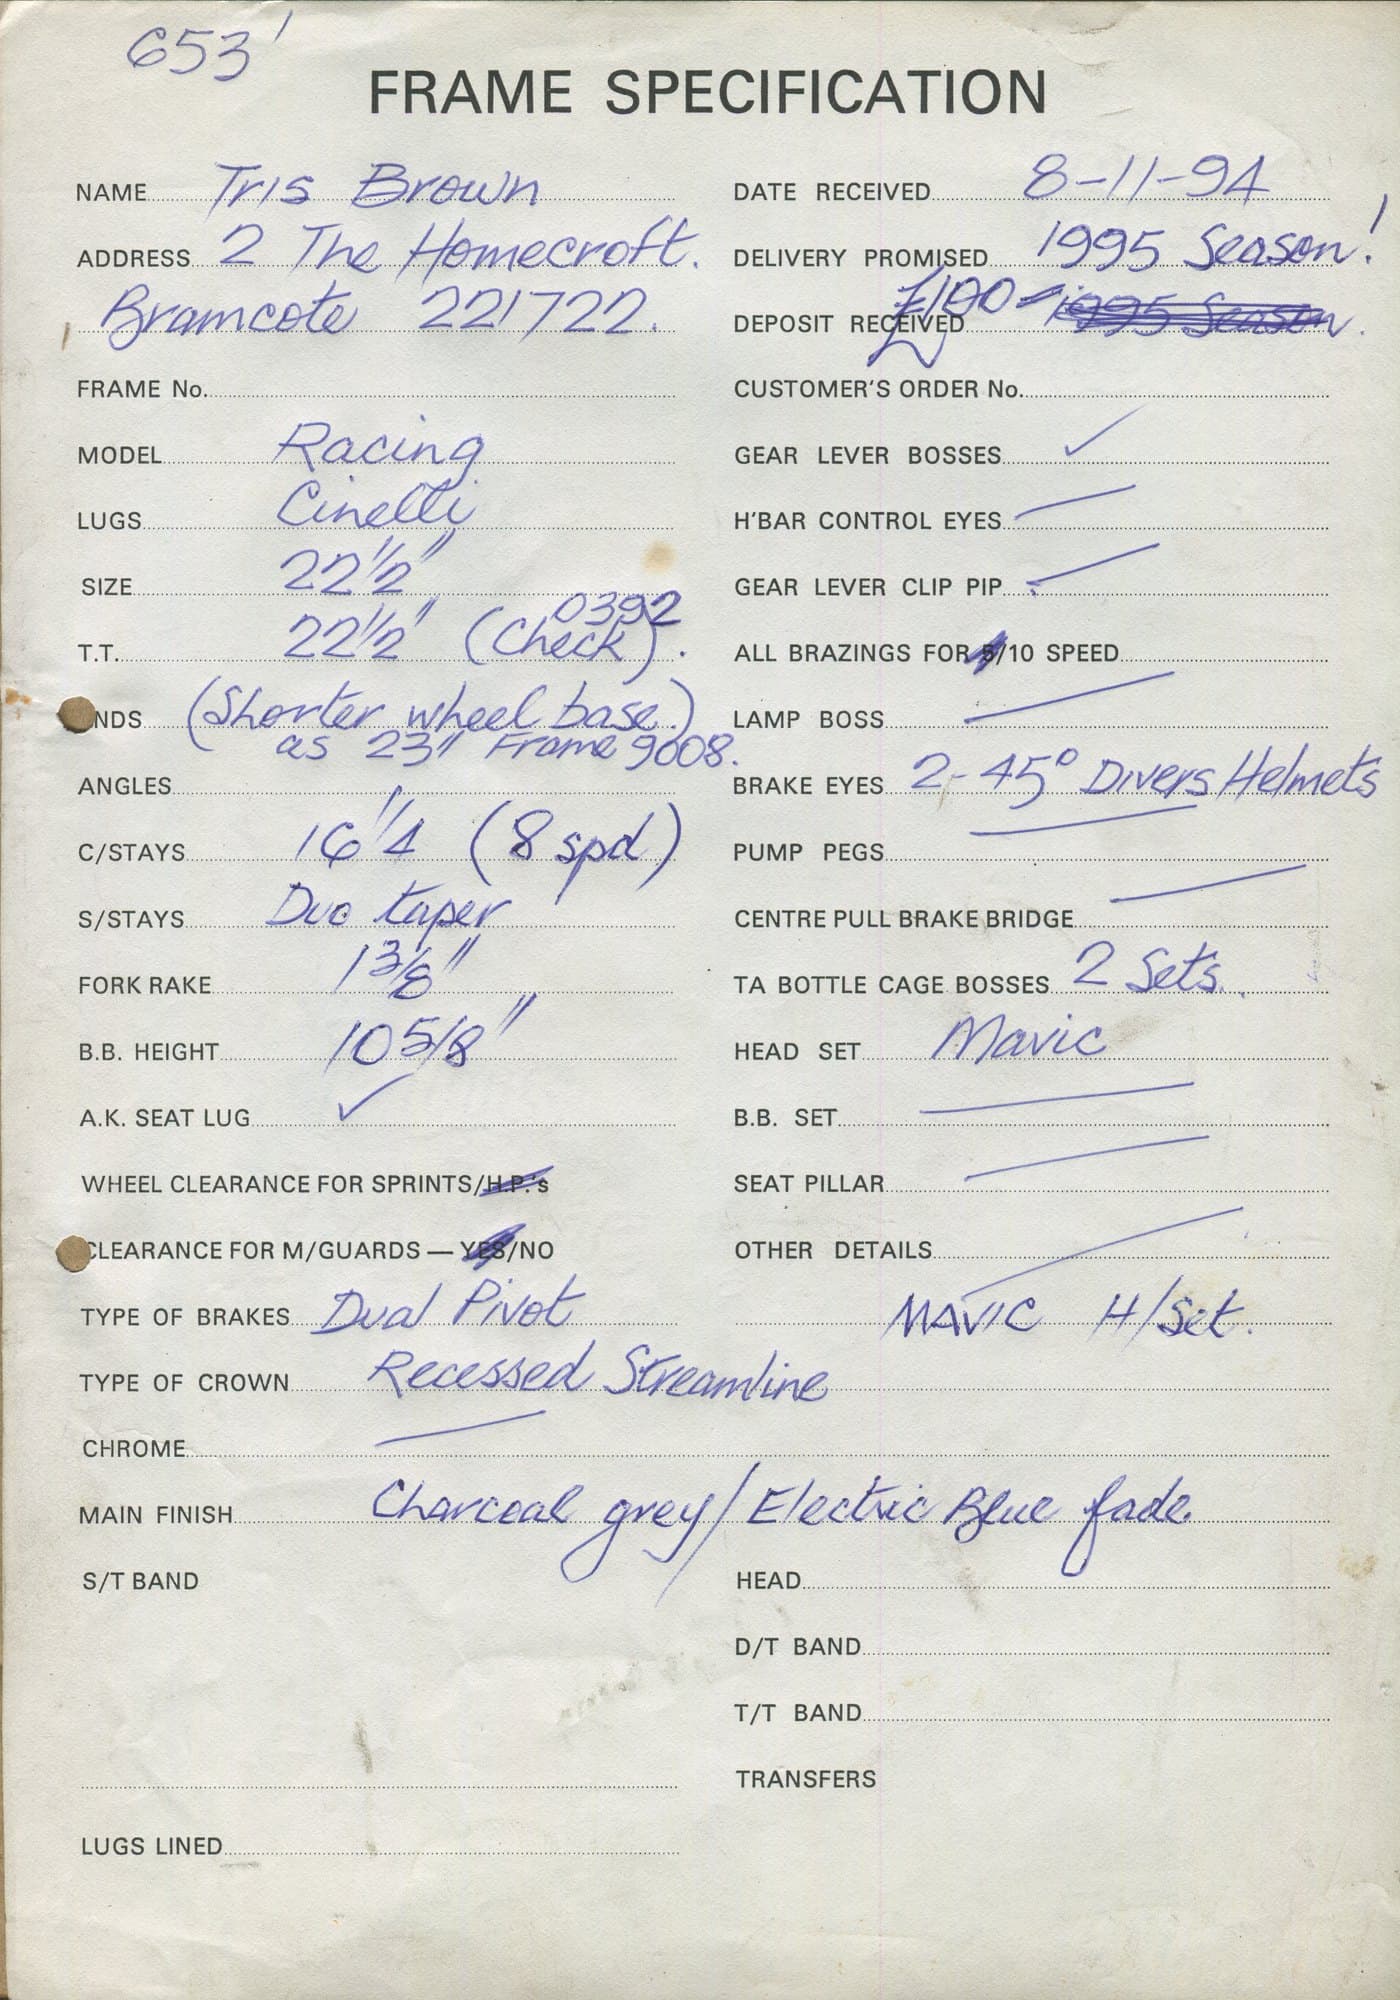 653
FRAME SPECIFICATION
NAME Tris Brown
ADDRESS 2 The Homecroft.
Bramcote 221722.
FRAME No.
MODEL Racing
LUGS Cinelli
SIZE 22 1/2"
T.T. 22 1/2" (Check). 0392
NDS (Shorter wheel base)
as 23" Frame 9008.
ANGLES
C/STAYS 16 1/4" (8 spd)
S/STAYS Duo taper
FORK RAKE 1 3/8"
B.B. HEIGHT 10 5/8"
A.K. SEAT LUG ✓
WHEEL CLEARANCE FOR SPRINTS/H.P.'s
CLEARANCE FOR M/GUARDS — YES/NO
TYPE OF BRAKES Dual Pivot
TYPE OF CROWN Recessed Streamline
CHROME —
MAIN FINISH Charcoal grey/Electric Blue fade.
S/T BAND
LUGS LINED
DATE RECEIVED 8-11-94
DELIVERY PROMISED 1995 Season!
DEPOSIT RECEIVED £100 - 1995 Season.
CUSTOMER'S ORDER No.
GEAR LEVER BOSSES ✓
H'BAR CONTROL EYES —
GEAR LEVER CLIP PIP —
ALL BRAZINGS FOR 5/10 SPEED
LAMP BOSS —
BRAKE EYES 2-45° Divers Helmets
PUMP PEGS —
CENTRE PULL BRAKE BRIDGE —
TA BOTTLE CAGE BOSSES 2 Sets.
HEAD SET Mavic
B.B. SET —
SEAT PILLAR —
OTHER DETAILS —
MAVIC H/Set.
HEAD
D/T BAND
T/T BAND
TRANSFERS